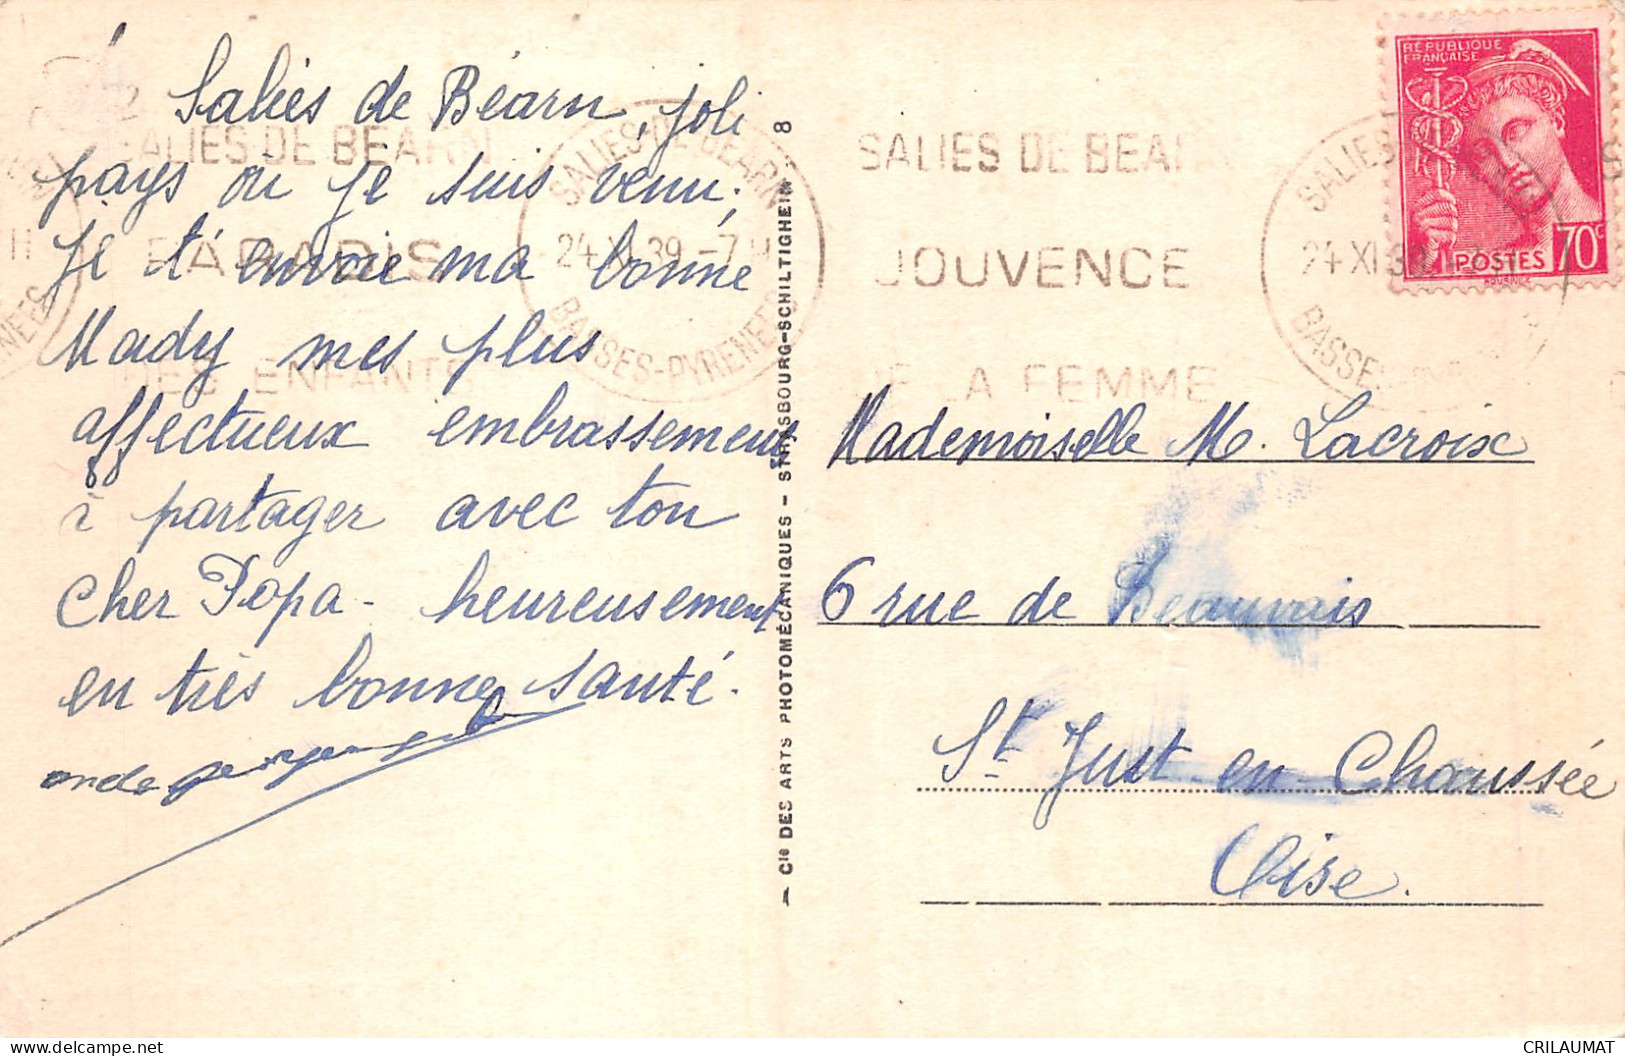 Salies de Béarn, joli
pays où je suis venu.
Je t'envoie ma bonne
Mady mes plus
affectueux embrassements
à partager avec ton
cher Papa - heureusement
en très bonne santé.
SALIES DE BEARN
PARADIS
DES ENFANTS
SALIES-DE-BEARN
24 XI 39
BASSES-PYRENEES
Cie DES ARTS PHOTOMÉCANIQUES - STRASBOURG-SCHILTIGHEIM 8
SALIES DE BEA
JOUVENCE
DE LA FEMME
SALIES
24 XI 39
BASSES
RÉPUBLIQUE
FRANÇAISE
POSTES 70c
Mademoiselle M. Lacroix
6 rue de Beauvais
St Just en Chaussée
Oise.
CRILAUMAT